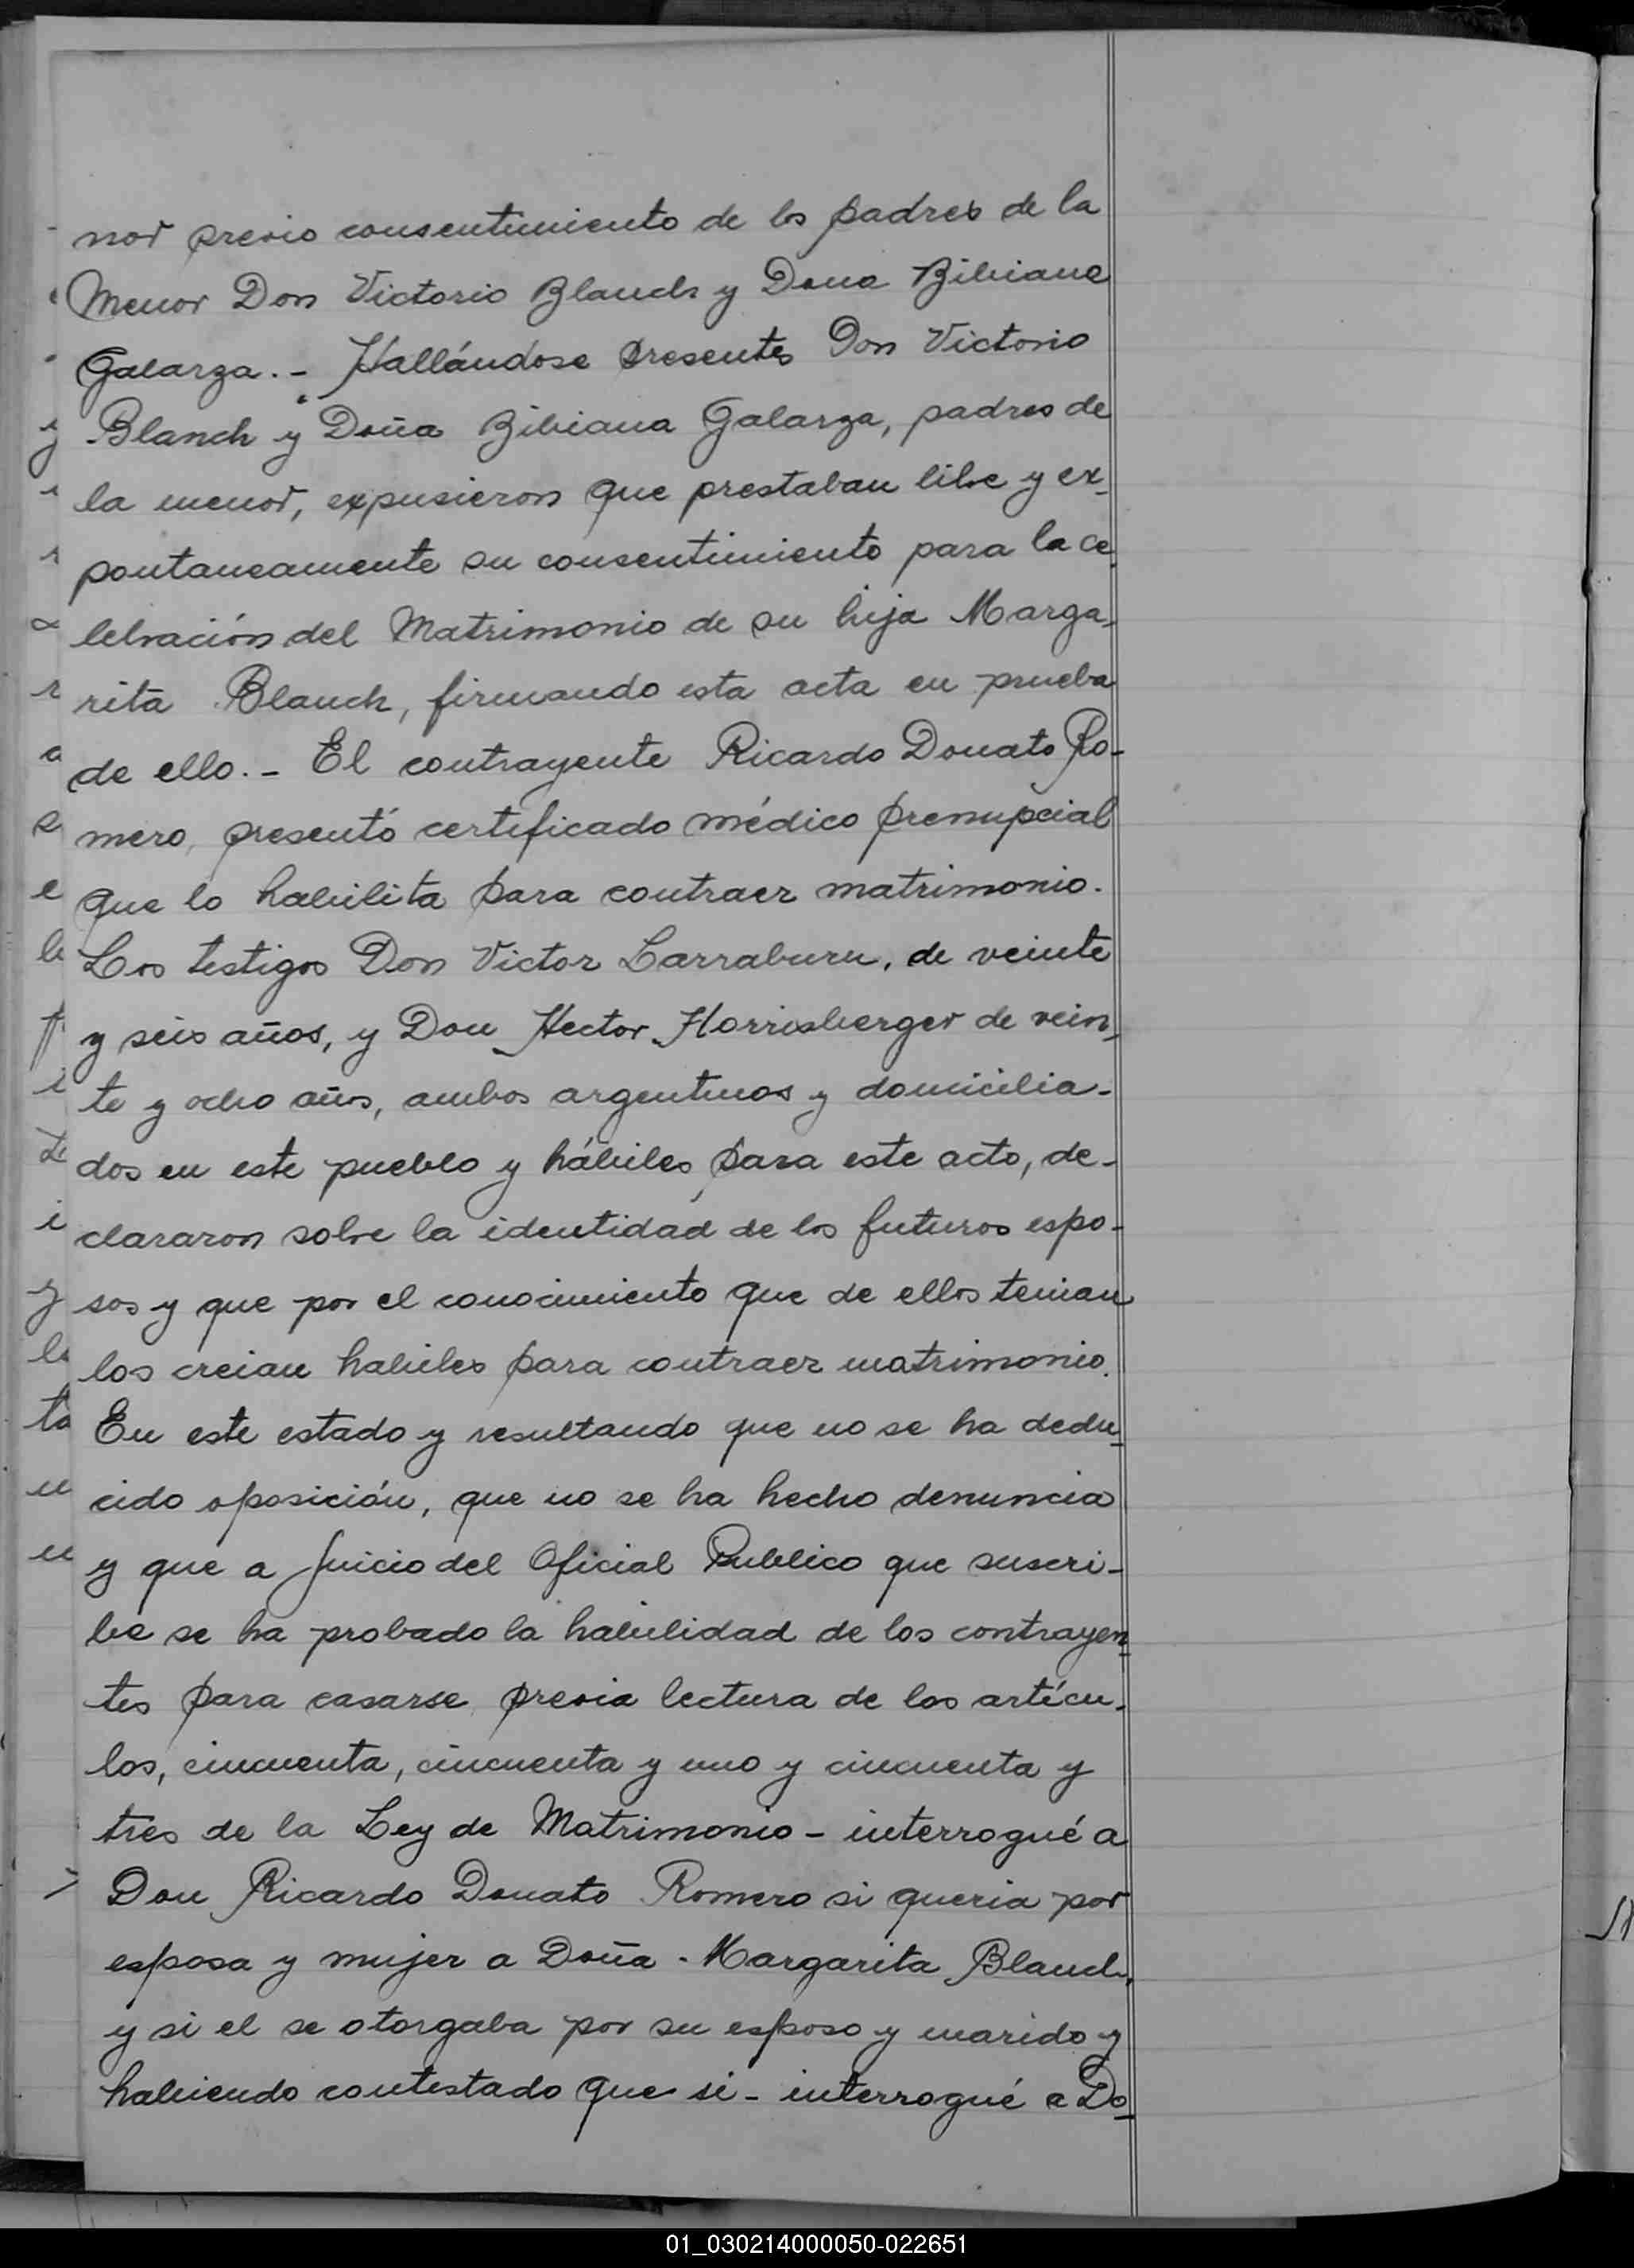 nor previo consentimiento de los padres de la
Menor Don Victorio Blanch y Dona Bibiana
Galarza.- Hallándose presentes Don Victorio
Blanch y Doña Bibiana Galarza, padres de
la menor, expusieron que prestaban libre y ex-
pontaneamente su consentimiento para la ce-
lebración del Matrimonio de su hija Marga-
rita Blanch, firmando esta acta en prueba
de ello.- El contrayente Ricardo Donato Ro-
mero, presentó certificado médico prenupcial
que lo habilita para contraer matrimonio.
Los testigos Don Victor Larraburu, de veinte
y seis años, y Don Hector Horrisberger de vein-
te y ocho años, ambos argentinos y domicilia-
dos en este pueblo y hábiles para este acto, de-
clararon sobre la identidad de los futuros espo-
sos y que por el conocimiento que de ellos tenian
los creian habiles para contraer matrimonio.
En este estado y resultando que no se ha dedu-
cido oposición, que no se ha hecho denuncia
y que a juicio del Oficial Publico que suscri-
be se ha probado la habilidad de los contrayen-
tes para casarse, previa lectura de los artícu-
los, cincuenta, cincuenta y uno y cincuenta y
tres de la Ley de Matrimonio - interrogué a
Don Ricardo Donato Romero si queria por
esposa y mujer a Doña Margarita Blanch,
y si el se otorgaba por su esposo y marido y
habiendo contestado que si - interrogué a Do-
01_030214000050-022651